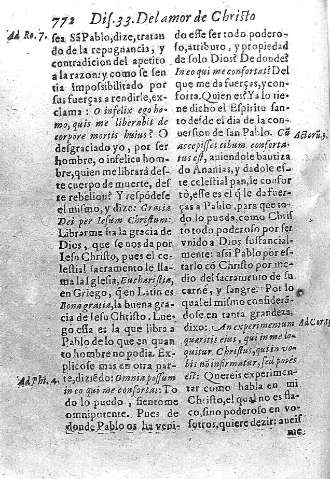 772 Dis. 33. Del amor de Christo
Ad Ro. 7.
sea Sã Pablo, dize, tratan
do de la repugnancia, y
contradicion del apetito
a la razon: y como se sen
tia imposibilitado por
sus fuerças a rendirle, ex
clama: O infelix ego ho-
mo, quis me liberabit de
corpore mortis huius? O
desgraciado yo, por ser
hombre, o infelice hom
bre, quien me librarà des
te cuerpo de muerte, des
te rebelion? Y respõdese
el mismo, y dize: Gratia
Dei per Iesum Christum.
Librarme ha la gracia de
Dios, que se nos da por
Iesu Christo, pues el ce
lestial sacramento le lla-
ma la Iglesia, Eucharistia,
en Griego, q̃ en Latin es
Bona gratia, la buena gra
cia de Iesu Christo. Lue
go essa es la que libra a
Pablo de lo que en quan
to hombre no podia. Ex
plicose mas en otra par-
te, diziẽdo: Omnia possum
in eo qui me confortat: To
do lo puedo, siento me
omnipotente. Pues de
donde Pablo os ha veni-
Ad Phi. 4.
do esse ser todo podero-
so, atributo, y propiedad
de solo Dios? De donde?
In eo qui me confortat: Del
que me da fuerças, y con-
forta. Quien es? Ya lo tie
ne dicho el Espiritu san-
to desde el dia de la con
uersion de san Pablo. Cũ
accepisset cibum confortat
tus est, auiendole bautiza
do Ananias, y dadole es-
te celestial pan, le confor
tò, esse es el q̃ le da fuer-
ças a Pablo, para que to-
do lo pueda, como Chris
to todo poderoso por ser
vnido a Dios sustancial-
mente: assi Pablo por es-
tarlo cõ Christo por me
dio del sacramento de su
carne, y sangre. Por lo
qual el mismo considerã-
dose en tanta grandeza,
dixo: An experimentum
quæritis eius, qui in me lo-
quitur Christus, qui in vo-
bis nõ infirmatur, sed potẽs
est: Quereis experimen-
tar como habla en mi
Christo, el qual no es fla
co, sino poderoso en vo-
sotros, quiere dezir: aueis
Actorũ. 9.